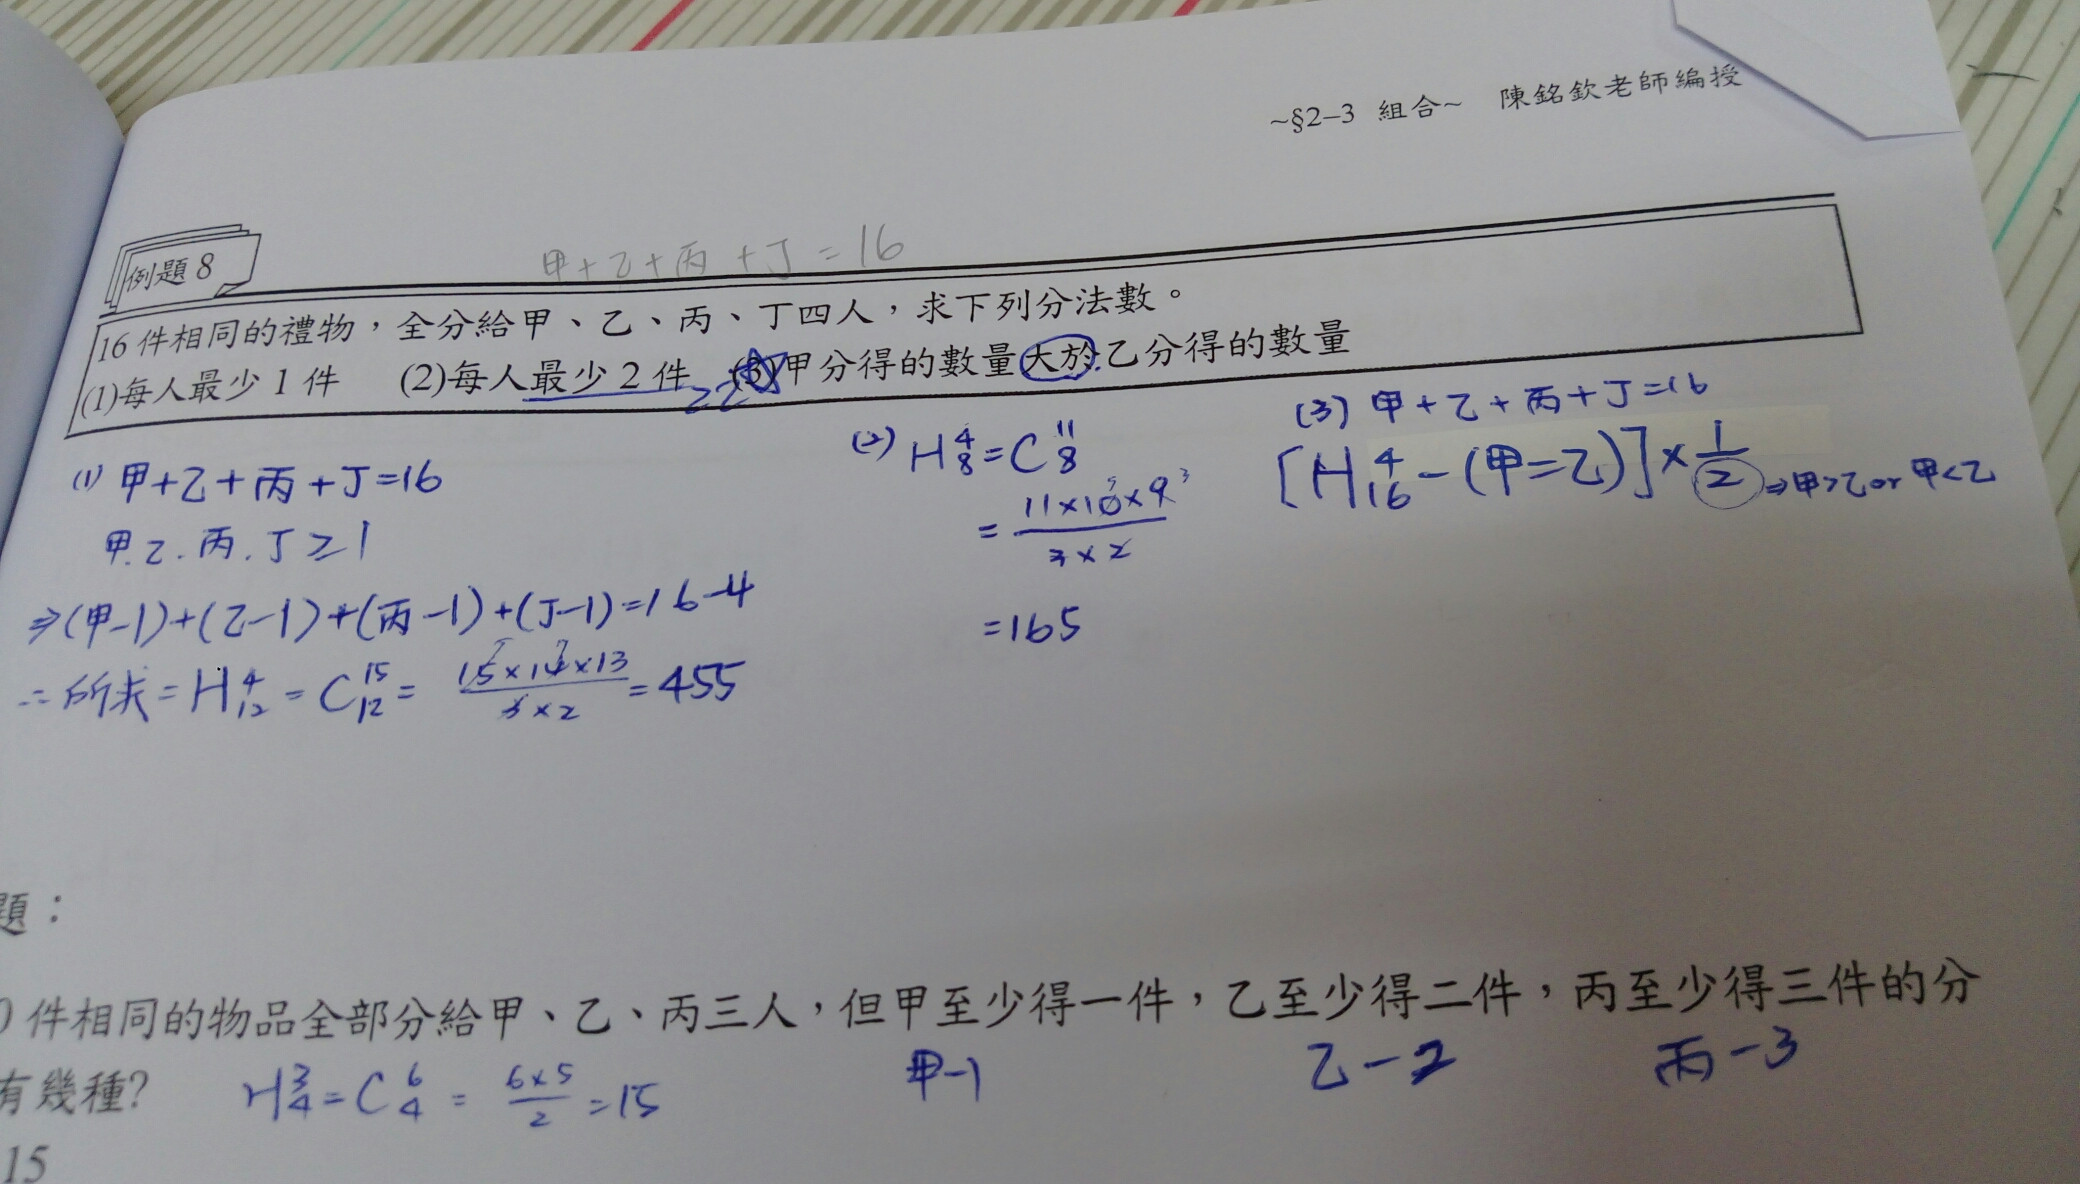 ~§2-3 組合~ 陳銘欽老師編授
甲+乙+丙+丁=16
例題8
16件相同的禮物，全分給甲、乙、丙、丁四人，求下列分法數。
(1)每人最少1件 (2)每人最少2件 (3)甲分得的數量大於乙分得的數量
(1) 甲+乙+丙+丁=16
甲.乙.丙.丁≥1
⇒(甲-1)+(乙-1)+(丙-1)+(丁-1)=16-4
∴所求=H⁴₁₂=C¹⁵₁₂=(15×14×13)/(3×2)=455
(2) H⁴₈=C¹¹₈
=(11×10×9)/(3×2)
=165
(3) 甲+乙+丙+丁=16
[H⁴₁₆-(甲=乙)]×1/2⇒甲>乙or甲<乙
題：
件相同的物品全部分給甲、乙、丙三人，但甲至少得一件，乙至少得二件，丙至少得三件的分
甲-1 乙-2 丙-3
有幾種?
H³₄=C⁶₄=(6×5)/2=15
15